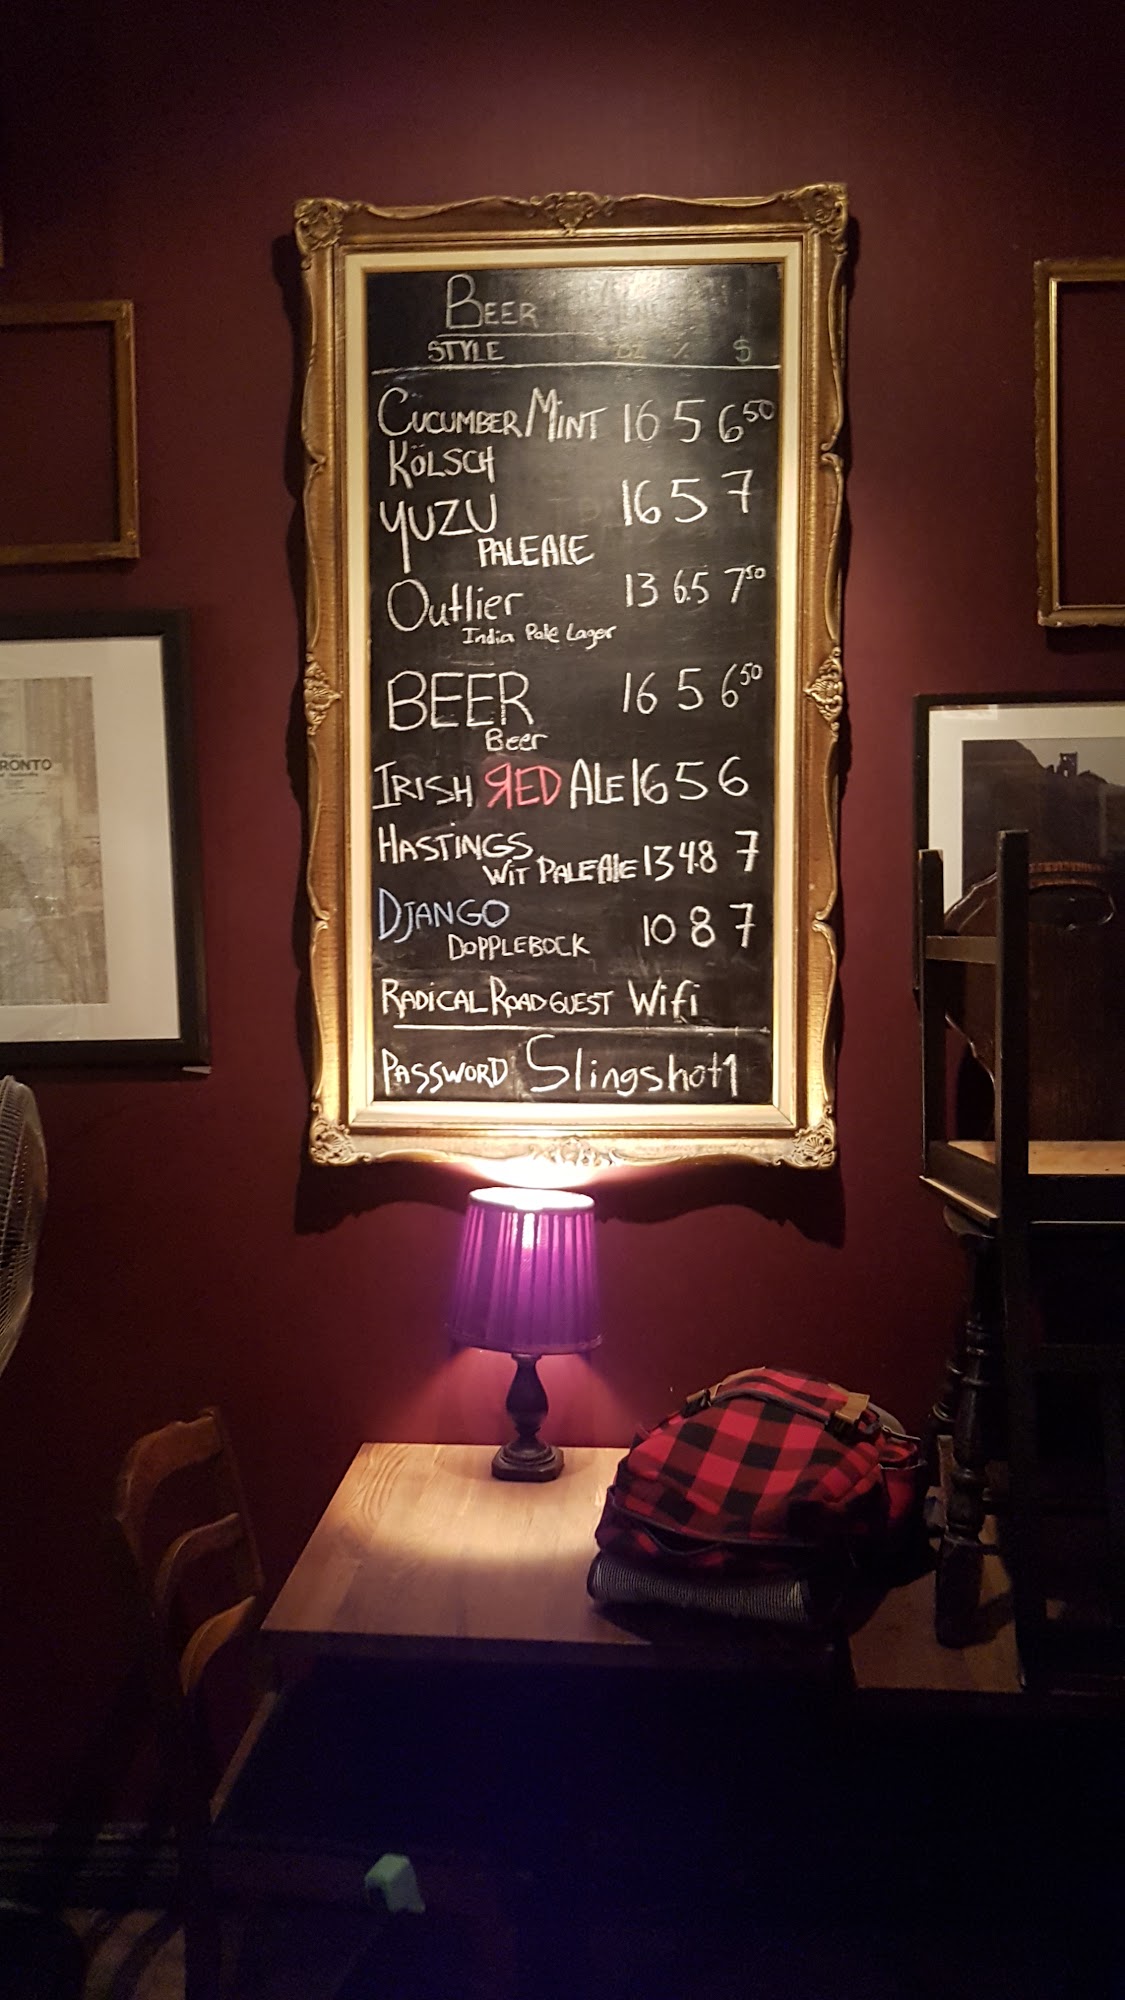 BEER
STYLE OZ % $
CUCUMBER MINT 16 5 6 50
KÖLSCH
YUZU 16 5 7
PALE ALE
Outlier 13 6.5 7 50
India Pale Lager
BEER 16 5 6 50
Beer
IRISH RED ALE 16 5 6
HASTINGS
WIT PALE AlE 13 4.8 7
DJANGO 10 8 7
DOPPLEBOCK
RADICAL ROAD GUEST Wifi
PASSWORD Slingshot1
RONTO